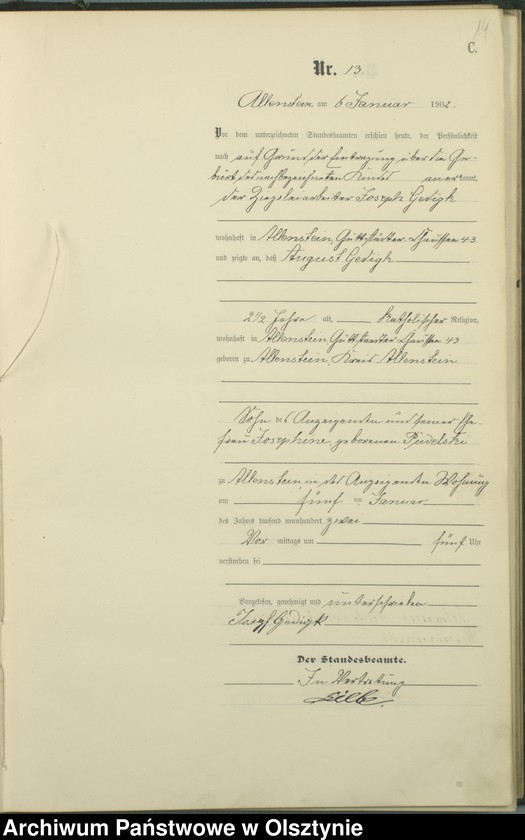 14
C.
Nr. 13.
Allenstein, am 6 Januar 1902.
Vor dem unterzeichneten Standesbeamten erschien heute, der Persönlichkeit
nach auf Grund der Eintragung über die Ge-
burt des nachbezeichneten Kindes anerkannt,
der Ziegeleiarbeiter Joseph Gedigk
wohnhaft in Allenstein, Guttstädter Chaussee 43
und zeigte an, daß August Gedigk
2 1/2 Jahre alt, katholischer Religion,
wohnhaft in Allenstein, Guttstädter Chaussee 43
geboren zu Allenstein, Kreis Allenstein
Sohn des Anzeigenden und seiner Ehe-
frau Josephine, geborenen
zu Allenstein, in des Anzeigenden Wohnung
am fünf ten Januar
des Jahres tausend neunhundert zwei
Vor mittags um fünf Uhr
verstorben sei
Vorgelesen, genehmigt und unterschrieben
Josef Gedigk
Der Standesbeamte.
In Vertretung
Archiwum Państwowe w Olsztynie